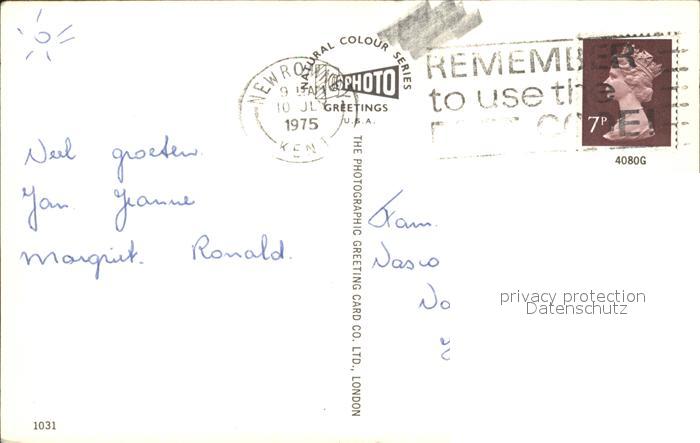 NATURAL COLOUR SERIES
PHOTO
GREETINGS
U.S.A.
NEW ROMNEY
10 JL
1975
KENT
REMEMBER
to use the
POST CODE!
7P
4080G
Veel groeten.
Jan Jeanne
Margriet. Ronald.
THE PHOTOGRAPHIC GREETING CARD CO. LTD., LONDON
Fam.
privacy protection
Datenschutz
1031